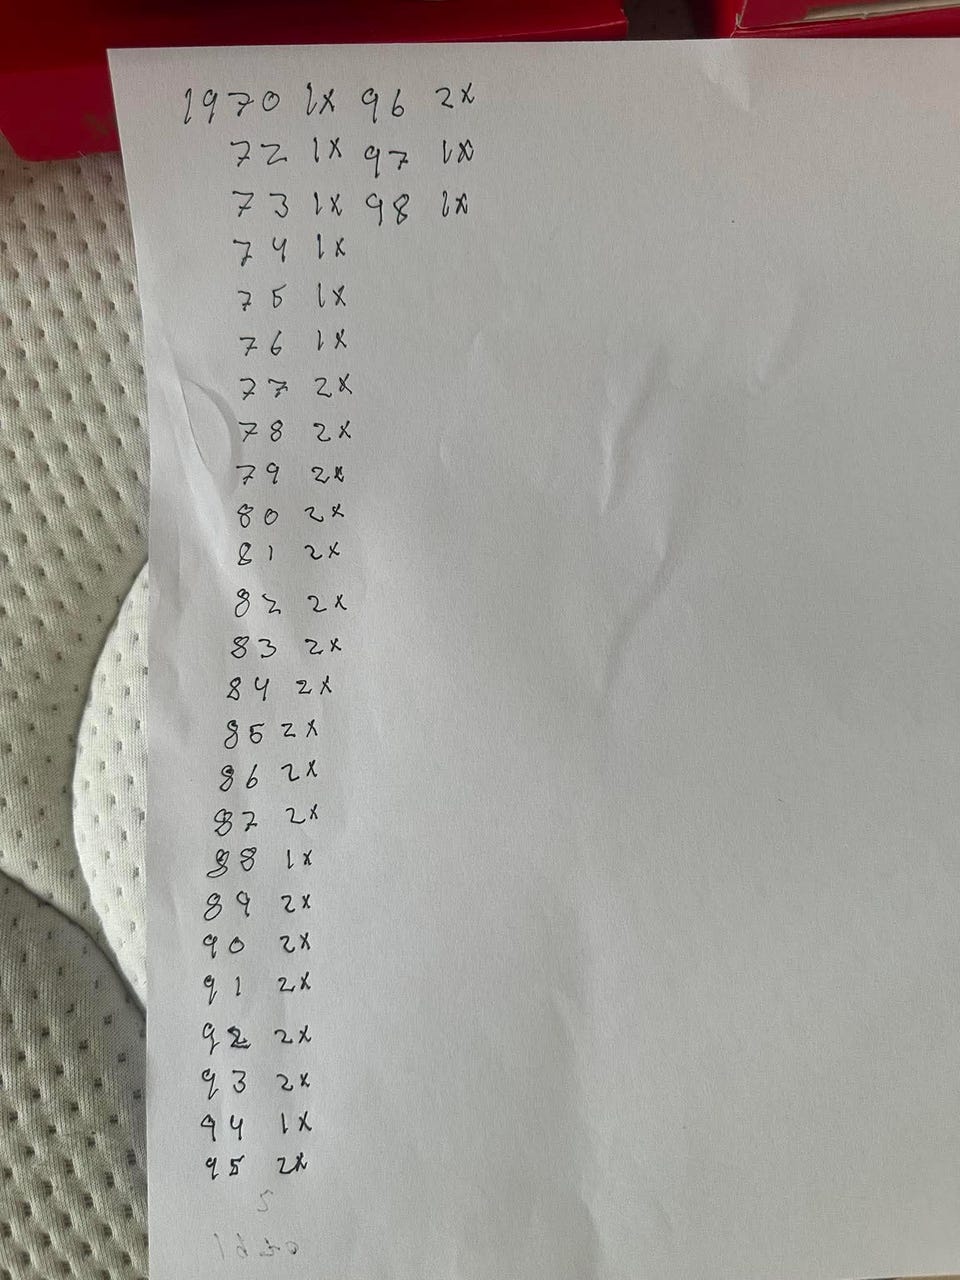 1970 1x 96 2x
72 1x 97 1x
73 1x 98 1x
74 1x
75 1x
76 1x
77 2x
78 2x
79 2x
80 2x
81 2x
82 2x
83 2x
84 2x
85 2x
86 2x
87 2x
88 1x
89 2x
90 2x
91 2x
92 2x
93 2x
94 1x
95 2x